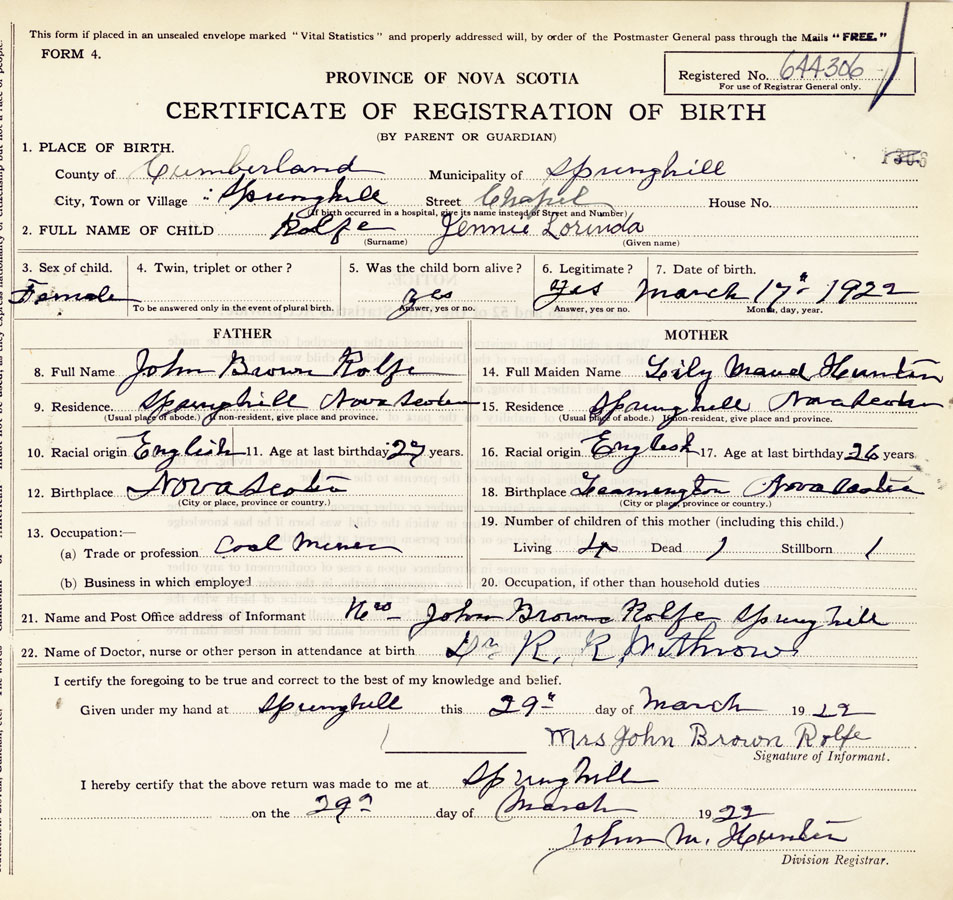 This form if placed in an unsealed envelope marked "Vital Statistics" and properly addressed will, by order of the Postmaster General pass through the Mails "FREE."
FORM 4.
Registered No. 644306
For use of Registrar General only.
PROVINCE OF NOVA SCOTIA
CERTIFICATE OF REGISTRATION OF BIRTH
(BY PARENT OR GUARDIAN)
1306
1. PLACE OF BIRTH.
County of Cumberland Municipality of Springhill
City, Town or Village Springhill Street Chapel House No.
(If birth occurred in a hospital, give its name instead of Street and Number)
2. FULL NAME OF CHILD Rolfe Jennie Lorinda
(Surname) (Given name)
3. Sex of child. 4. Twin, triplet or other? 5. Was the child born alive? 6. Legitimate? 7. Date of birth.
Female yes yes March 17th 1922
To be answered only in the event of plural birth. Answer, yes or no. Answer, yes or no. Month, day, year.
FATHER MOTHER
8. Full Name John Brown Rolfe 14. Full Maiden Name Lily Maud Hunter
9. Residence. Springhill Nova Scotia 15. Residence Springhill Nova Scotia
(Usual place of abode.) If non-resident, give place and province. (Usual place of abode.) If non-resident, give place and province.
10. Racial origin English 11. Age at last birthday 27 years. 16. Racial origin English 17. Age at last birthday 26 years.
12. Birthplace Nova Scotia 18. Birthplace Leamington Nova Scotia
(City or place, province or country.) (City or place, province or country.)
13. Occupation:— 19. Number of children of this mother (including this child.)
(a) Trade or profession Coal Miner Living 4 Dead 1 Stillborn 1
(b) Business in which employed 20. Occupation, if other than household duties
21. Name and Post Office address of Informant Mrs John Brown Rolfe Springhill
22. Name of Doctor, nurse or other person in attendance at birth Dr R. R. Withrow
I certify the foregoing to be true and correct to the best of my knowledge and belief.
Given under my hand at Springhill this 29th day of March 1922
Mrs John Brown Rolfe
Signature of Informant.
I hereby certify that the above return was made to me at Springhill
on the 29 day of March 1922
John M. Hunter
Division Registrar.